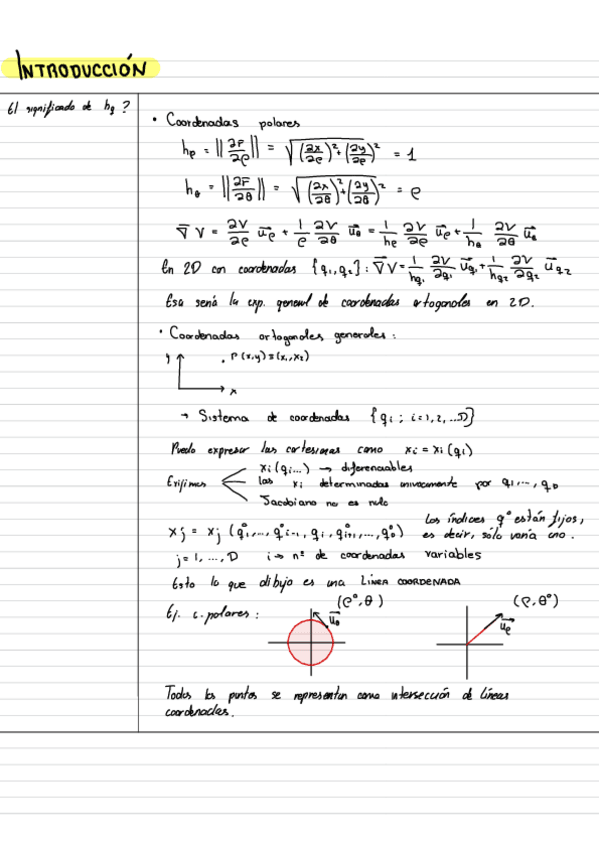 INTRODUCCIÓN
El significado de hq?
• Coordenadas polares
hρ = ||∂r̄/∂ρ|| = √((∂x/∂ρ)² + (∂y/∂ρ)²) = 1
hθ = ||∂r̄/∂θ|| = √((∂x/∂θ)² + (∂y/∂θ)²) = ρ
∇̄V = ∂V/∂ρ u⃗ρ + 1/ρ ∂V/∂θ u⃗θ = 1/hρ ∂V/∂ρ u⃗ρ + 1/hθ ∂V/∂θ u⃗θ
En 2D con coordenadas {q₁, q₂}: ∇̄V = 1/hq₁ ∂V/∂q₁ u⃗q₁ + 1/hq₂ ∂V/∂q₂ u⃗q₂
Esa sería la exp. general de coordenadas ortogonales en 2D.
• Coordenadas ortogonales generales:
y
. P(x,y) ≡ (x₁,x₂)
x
→ Sistema de coordenadas {qi ; i=1,2,...D}
Puedo expresar las cartesianas como xi = xi(qi)
xi(qi...) → diferenciables
Exigimos
las xi determinadas unívocamente por q₁,...,qD
Jacobiano no es nulo
xj = xj (q₁°,..., q°i-1, qi, q°i+1,..., q°D)
Los índices q° están fijos,
es decir, sólo varía uno.
j = 1, ..., D i → nº de coordenadas variables
Esto lo que dibuja es una LÍNEA COORDENADA
Ej. c. polares:
(ρ°, θ)
u⃗θ
(ρ, θ°)
u⃗ρ
Todos los puntos se representan como intersección de líneas
coordenadas.